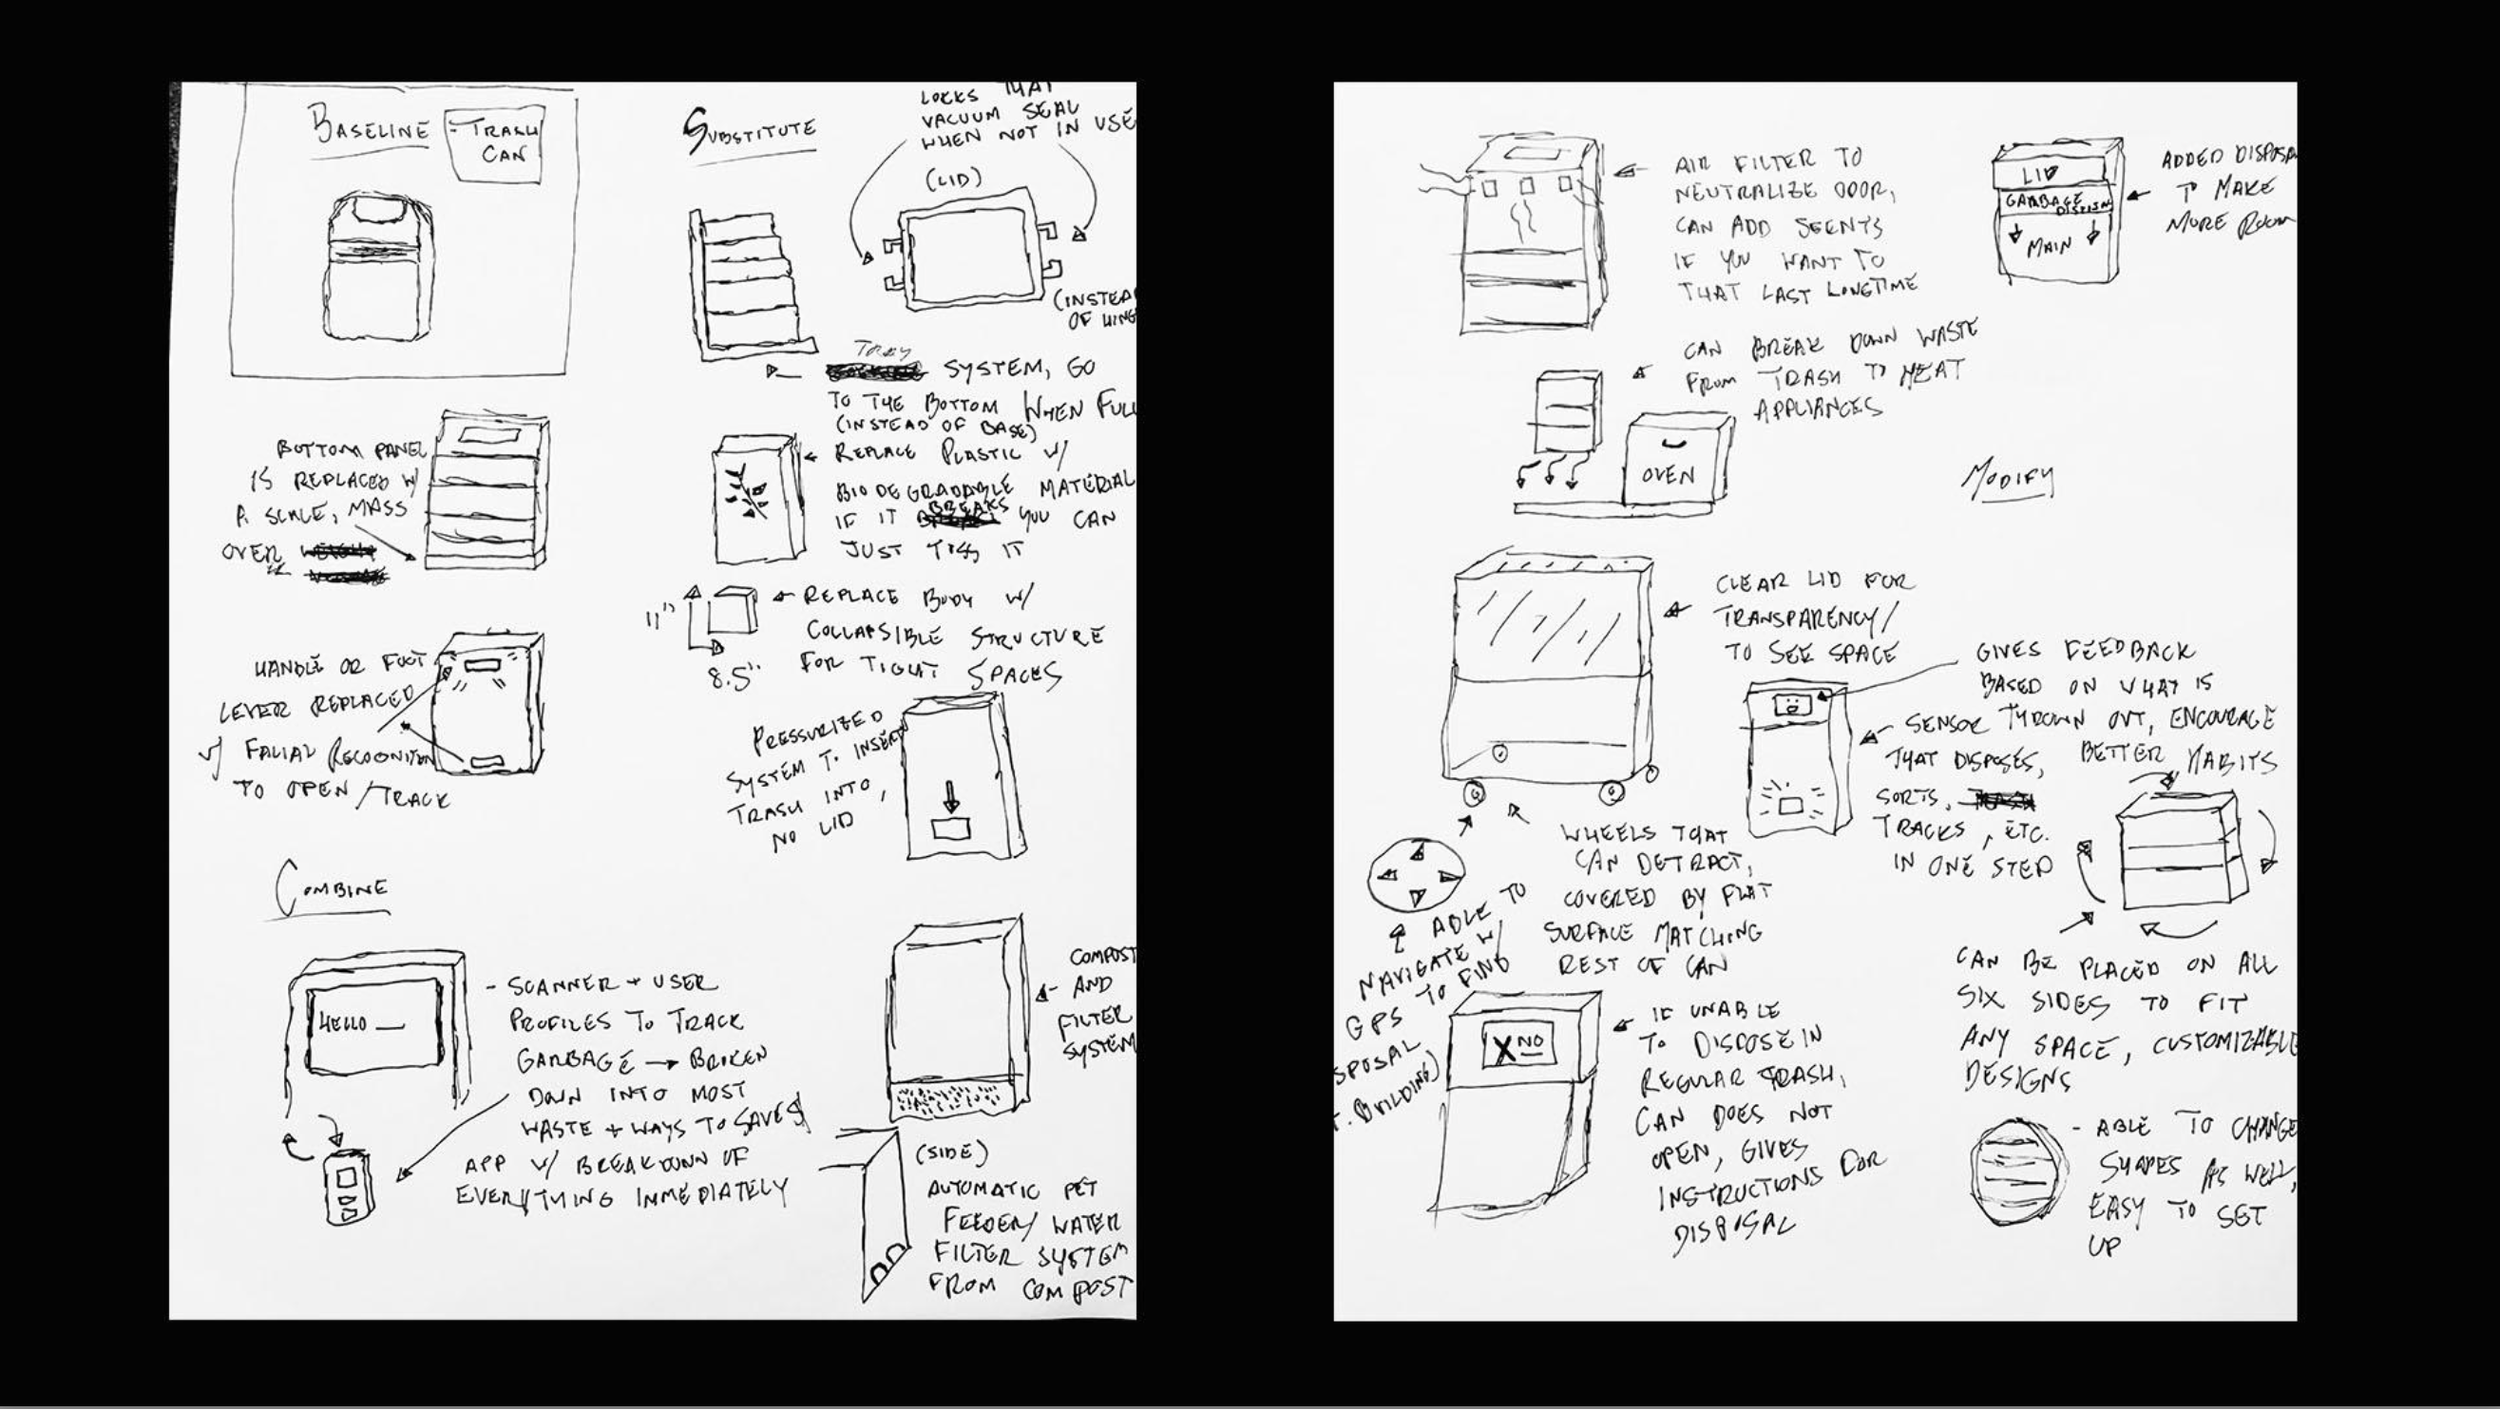 BASELINE
- TRASH
CAN
SUBSTITUTE
LOCKS THAT
VACUUM SEAL
WHEN NOT IN USE
(LID)
(INSTEAD
OF HING
TRAY
SYSTEM, GO
TO THE BOTTOM WHEN FULL
(INSTEAD OF BASE)
BOTTOM PANEL
IS REPLACED W/
A SCALE, MASS
OVER
REPLACE PLASTIC W/
BIODEGRADABLE MATERIAL
IF IT BREAKS YOU CAN
JUST TOSS IT
11"
8.5"
REPLACE BODY W/
COLLAPSIBLE STRUCTURE
FOR TIGHT SPACES
HANDLE OR FOOT
LEVER REPLACED
W/ FACIAL RECOGNITION
TO OPEN / TRACK
PRESSURIZED
SYSTEM TO INSERT
TRASH INTO,
NO LID
COMBINE
HELLO __
- SCANNER + USER
PROFILES TO TRACK
GARBAGE → BROKEN
DOWN INTO MOST
WASTE + WAYS TO SAVE $
APP W/ BREAKDOWN OF
EVERYTHING IMMEDIATELY
COMPOST
AND
FILTER
SYSTEM
(SIDE)
AUTOMATIC PET
FEEDER/ WATER
FILTER SYSTEM
FROM COMPOST
AIR FILTER TO
NEUTRALIZE ODOR,
CAN ADD SCENTS
IF YOU WANT TO
THAT LAST LONGTIME
LID
GARBAGE
DISPOSAL
MAIN
ADDED DISPOSA
TO MAKE
MORE ROOM
CAN BREAK DOWN WASTE
FROM TRASH TO HEAT
APPLIANCES
OVEN
MODIFY
CLEAR LID FOR
TRANSPARENCY/
TO SEE SPACE
GIVES FEEDBACK
BASED ON WHAT IS
THROWN OUT, ENCOURAGE
BETTER HABITS
SENSOR
THAT DISPOSES,
SORTS,
TRACKS, ETC.
IN ONE STEP
WHEELS THAT
CAN DETRACT,
COVERED BY FLAT
SURFACE MATCHING
REST OF CAN
ABLE TO
NAVIGATE W/
GPS TO FIND
SPOSAL
T. BUILDING)
CAN BE PLACED ON ALL
SIX SIDES TO FIT
ANY SPACE, CUSTOMIZABLE
DESIGNS
X NO
IF UNABLE
TO DISPOSE IN
REGULAR TRASH,
CAN DOES NOT
OPEN, GIVES
INSTRUCTIONS FOR
DISPOSAL
- ABLE TO CHANGE
SHAPES AS WELL,
EASY TO SET
UP